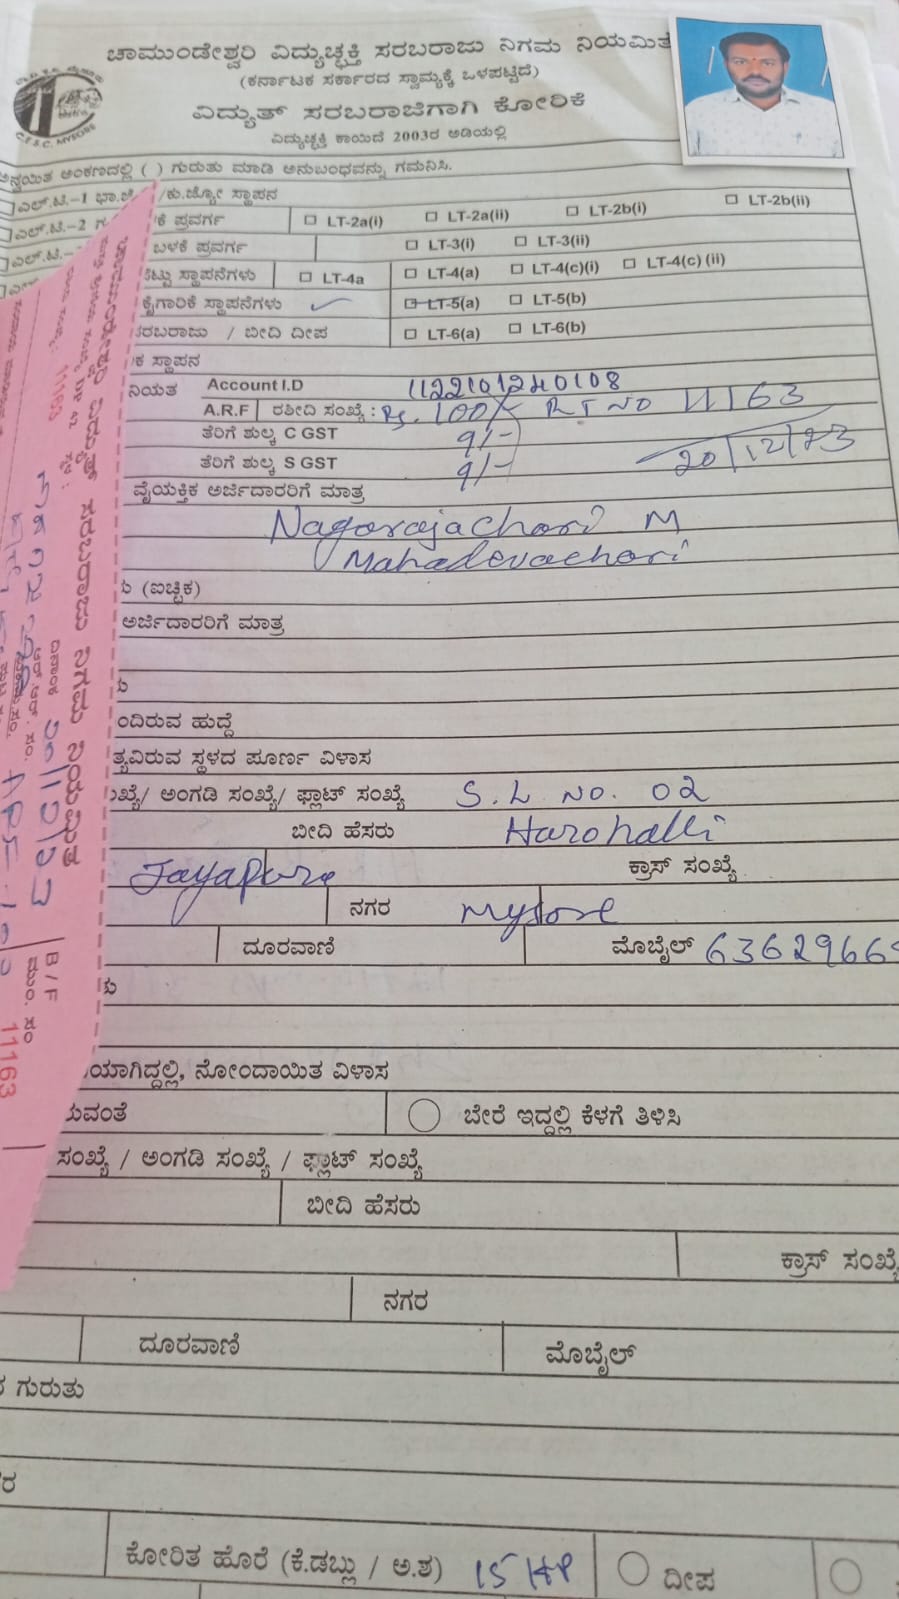 ಚಾಮುಂಡೇಶ್ವರಿ ವಿದ್ಯುಚ್ಛಕ್ತಿ ಸರಬರಾಜು ನಿಗಮ ನಿಯಮಿತ
(ಕರ್ನಾಟಕ ಸರ್ಕಾರದ ಸ್ವಾಮ್ಯಕ್ಕೆ ಒಳಪಟ್ಟಿದೆ)
ವಿದ್ಯುತ್ ಸರಬರಾಜಿಗಾಗಿ ಕೋರಿಕೆ
ವಿದ್ಯುಚ್ಛಕ್ತಿ ಕಾಯಿದೆ 2003ರ ಅಡಿಯಲ್ಲಿ
C.E.S.C. MYSORE
ಅನ್ವಯಿತ ಅಂಕಣದಲ್ಲಿ ( ) ಗುರುತು ಮಾಡಿ ಅನುಬಂಧವನ್ನು ಗಮನಿಸಿ.
ಎಲ್.ಟಿ.-1 ಭಾ.ಜೆ /ಕು.ಜ್ಯೋ ಸ್ಥಾಪನ
ಎಲ್.ಟಿ.-2 ಕೆ ಪ್ರವರ್ಗ LT-2a(i) LT-2a(ii) LT-2b(i) LT-2b(ii)
ಎಲ್.ಟಿ.- ಬಳಕೆ ಪ್ರವರ್ಗ LT-3(i) LT-3(ii)
ಸ್ಥಾಪನೆಗಳು LT-4a LT-4(a) LT-4(c)(i) LT-4(c) (ii)
ಕೈಗಾರಿಕೆ ಸ್ಥಾಪನೆಗಳು ✓ LT-5(a) LT-5(b)
ಸರಬರಾಜು / ಬೀದಿ ದೀಪ LT-6(a) LT-6(b)
ಕ ಸ್ಥಾಪನ
ನಿಯತ Account I.D 1122101240108
A.R.F ರಶೀದಿ ಸಂಖ್ಯೆ : Rs. 100/- RT NO 11163
ತೆರಿಗೆ ಶುಲ್ಕ C GST 9/- 20/12/23
ತೆರಿಗೆ ಶುಲ್ಕ S GST 9/-
ವೈಯಕ್ತಿಕ ಅರ್ಜಿದಾರರಿಗೆ ಮಾತ್ರ
Nagarajachari M
Mahadevachari
(ಐಚ್ಛಿಕ)
ಅರ್ಜಿದಾರರಿಗೆ ಮಾತ್ರ
ಂದಿರುವ ಹುದ್ದೆ
ತ್ಯವಿರುವ ಸ್ಥಳದ ಪೂರ್ಣ ವಿಳಾಸ
ಖ್ಯೆ/ ಅಂಗಡಿ ಸಂಖ್ಯೆ/ ಫ್ಲಾಟ್ ಸಂಖ್ಯೆ S.L NO. 02
ಬೀದಿ ಹೆಸರು Harohalli
Jayapura ಕ್ರಾಸ್ ಸಂಖ್ಯೆ
ನಗರ Mysore
ದೂರವಾಣಿ ಮೊಬೈಲ್ 63629669
ಯಾಗಿದ್ದಲ್ಲಿ, ನೋಂದಾಯಿತ ವಿಳಾಸ
ರುವಂತೆ ಬೇರೆ ಇದ್ದಲ್ಲಿ ಕೆಳಗೆ ತಿಳಿಸಿ
ಸಂಖ್ಯೆ / ಅಂಗಡಿ ಸಂಖ್ಯೆ / ಫ್ಲಾಟ್ ಸಂಖ್ಯೆ
ಬೀದಿ ಹೆಸರು
ಕ್ರಾಸ್ ಸಂಖ್ಯೆ
ನಗರ
ದೂರವಾಣಿ ಮೊಬೈಲ್
ಗುರುತು
ಕೋರಿತ ಹೊರೆ (ಕೆ.ಡಬ್ಲು / ಅ.ಶ) 15 HP ದೀಪ
ಚಾಮುಂಡೇಶ್ವರಿ ವಿದ್ಯುತ್ ಸರಬರಾಜು ನಿಗಮ ನಿಯಮಿತ
11163
ದಿನಾಂಕ 20/12/23
B/F
11163